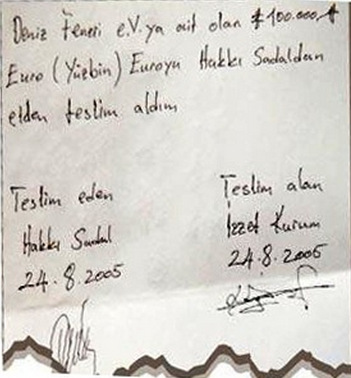 Deniz Feneri e.V. ya ait olan #100.000#
Euro (Yüzbin) Euroyu Hakkı Sadaldan
elden teslim aldım
Teslim eden
Hakkı Sadal
24.8.2005
Teslim alan
İzzet Kurum
24.8.2005